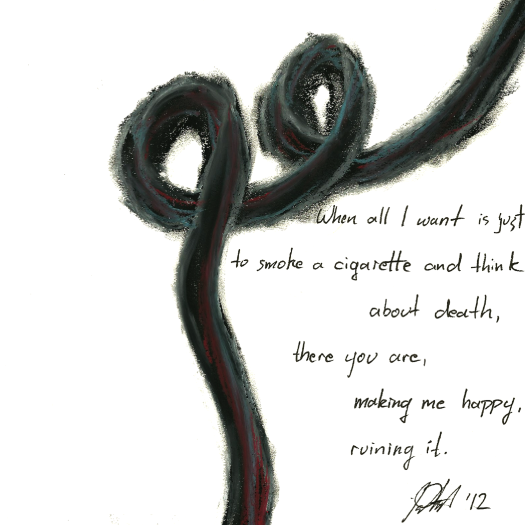 When all I want is just
to smoke a cigarette and think
about death,
there you are,
making me happy,
ruining it.
'12